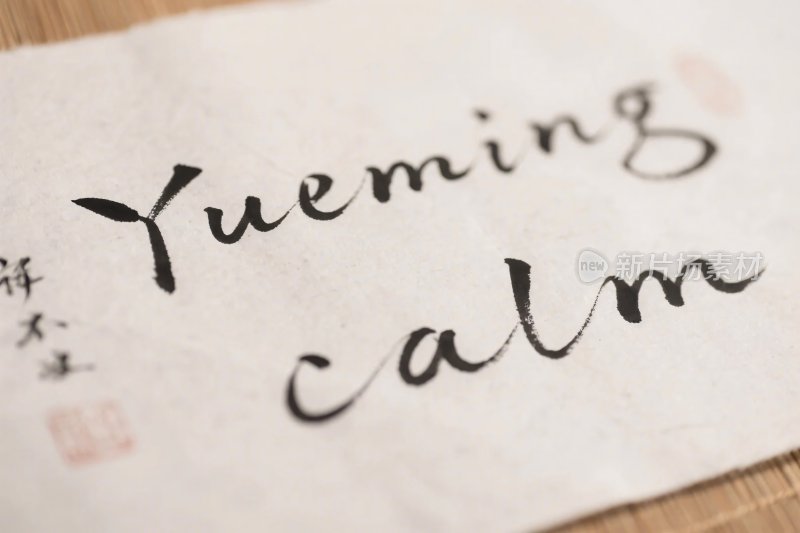 Yueming
calm
new 新片场素材